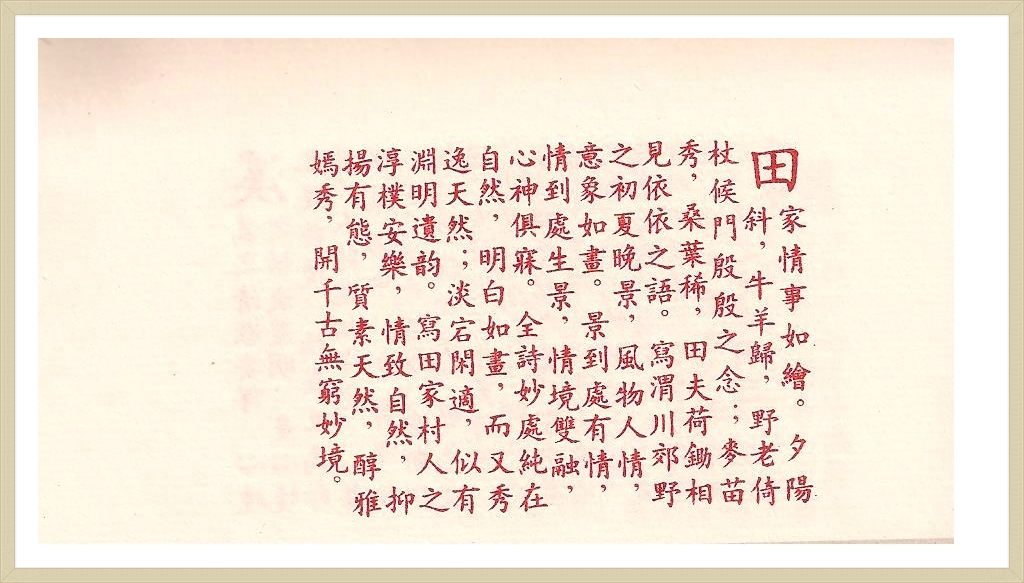 田家情事如繪。夕陽
斜，牛羊歸，野老倚
杖候門殷殷之念；麥苗
秀，桑葉稀，田夫荷鋤相
見依依之語。寫渭川郊野
之初夏晚景，風物人情，
意象如畫。景到處有情，
情到處生景，情境雙融，
心神俱寐。全詩妙處純在
自然，明白如畫，而又秀
逸天然；淡宕閑適，似有
淵明遺韵。寫田家村人之
淳樸安樂，情致自然，抑
揚有態，質素天然，醇雅
嫣秀，開千古無窮妙境。